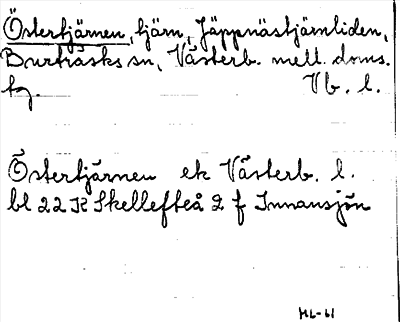 Östertjärnen, tjärn, Jäppnästjärnliden,
Burträsks sn, Västerb. mell. doms.
tg. Vb. l.
Östertjärnen ek Västerb. l.
bl 22 K Skellefteå 2 f Innansjön
ML-61